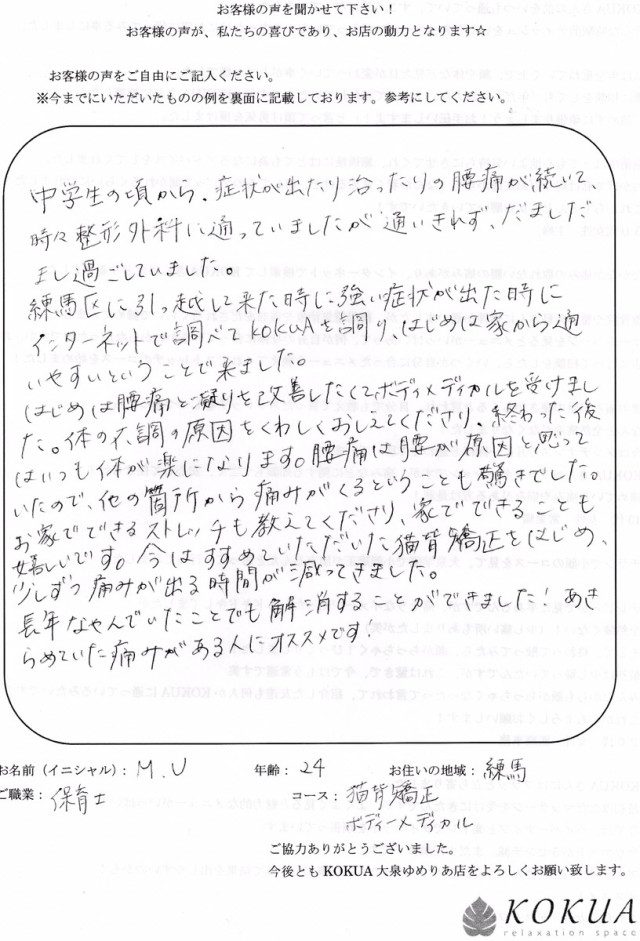 お客様の声を聞かせて下さい！
お客様の声が、私たちの喜びであり、お店の動力となります☆
お客様の声をご自由にご記入ください。
※今までにいただいたものの例を裏面に記載しております。参考にしてください。
中学生の頃から、症状が出たり治ったりの腰痛が続いて、
時々整形外科に通っていましたが通いきれず、だましだ
まし過ごしていました。
練馬区に引っ越して来た時に強い症状が出た時に
インターネットで調べてKOKUAを調り、はじめは家から通
いやすいということで来ました。
はじめは腰痛と凝りを改善したくてボディメディカルを受けまし
た。体の不調の原因をくわしくおしえてくださり、終わった後
はいつも体が楽になります。腰痛は腰が原因と思って
いたので、他の箇所から痛みがくるということも驚きでした。
お家でできるストレッチも教えてくださり、家でできることも
嬉しいです。今はすすめていただいた猫背矯正をはじめ、
少しずつ痛みが出る時間が減ってきました。
長年なやんでいたことでも解消することができました！あき
らめていた痛みがある人にオススメです！
お名前（イニシャル）：M.U 年齢：24 お住いの地域：練馬
ご職業：保育士 コース：猫背矯正
ボディーメディカル
ご協力ありがとうございました。
今後ともKOKUA大泉ゆめりあ店をよろしくお願い致します。
KOKUA
relaxation space